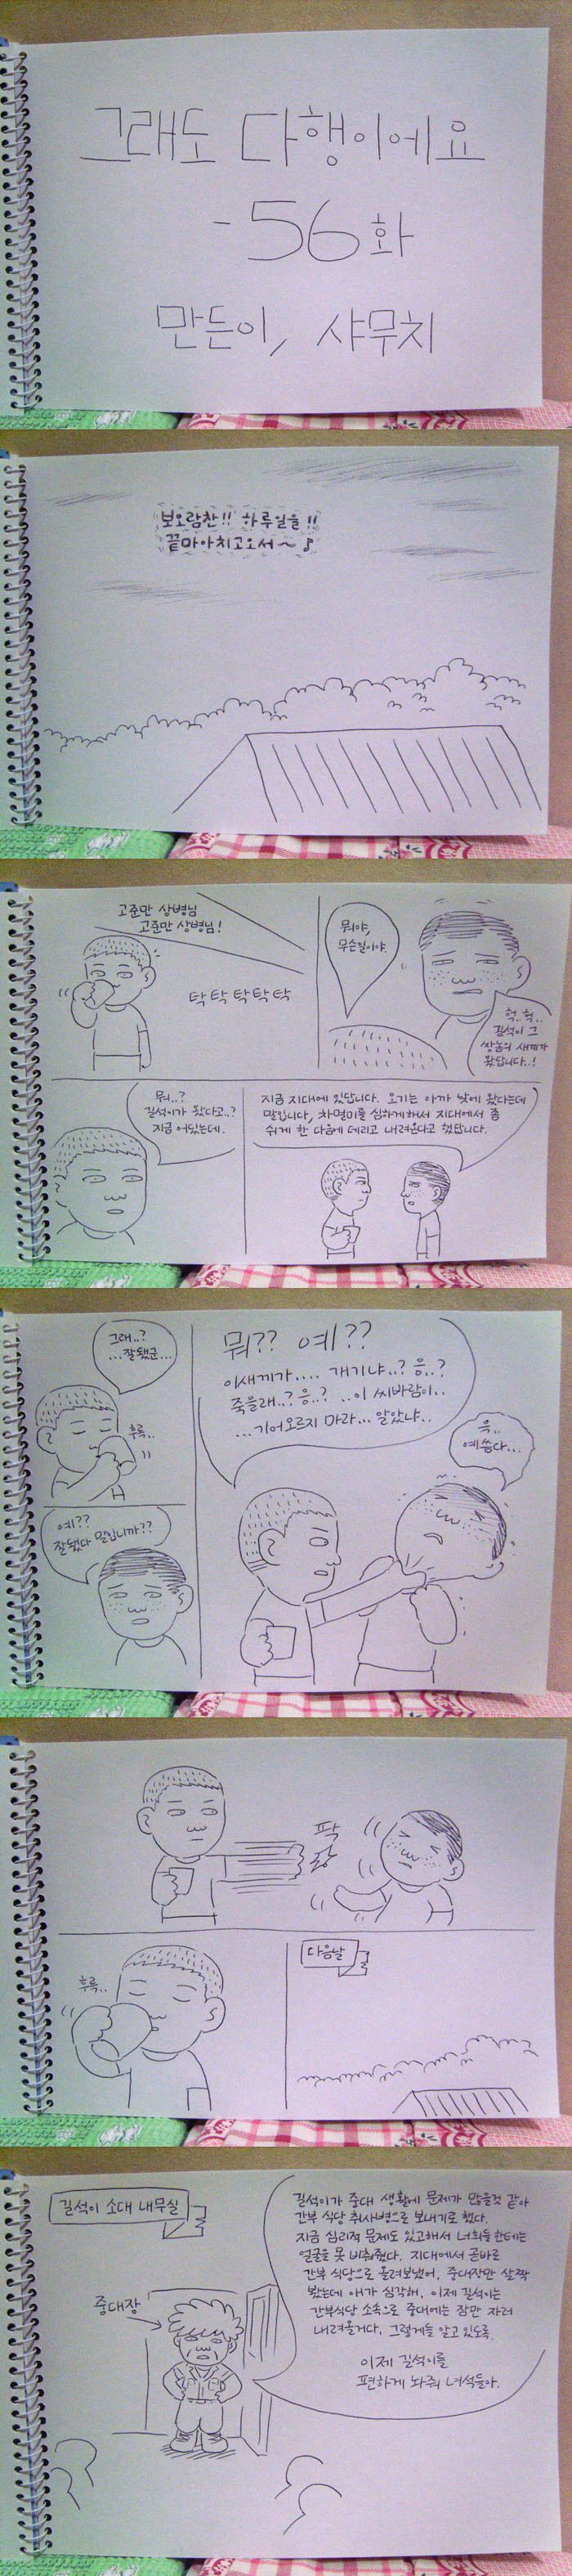 그래도 다행이에요
-56화
만든이, 샤무치
보오람찬!! 하루일을!!
끝마아치고오서~♪
고준만 상병님
고준만 상병님!
탁 탁 탁 탁 탁
뭐야,
무슨일이야.
헉.헉..
길석이 그
쌍놈의 새끼가
왔답니다..!
뭐..?
길석이가 왔다고..?
지금 어딨는데.
지금 지대에 있답니다. 오기는 아까 낮에 왔다는데
말입니다, 차멀미를 심하게해서 지대에서 좀
쉬게 한 다음에 데리고 내려온다고 했답니다.
그래..?
...잘됐군...
후륵..
예??
잘됐다 말입니까??
뭐?? 예??
이새끼가.... 개기냐..? 응..?
죽을래..? 응..? ..이 씨바람이..
...기어오르지 마라... 알았냐..
윽..
예씀다...
팍
후륵..
다음날
길석이 소대 내무실
중대장
길석이가 중대 생활에 문제가 많을것 같아
간부 식당 취사병으로 보내기로 했다.
지금 심리적 문제도 있고해서 너희들한테는
얼굴을 못 비춰줬다. 지대에서 곧바로
간부 식당으로 올려보냈어, 중대장만 살짝
봤는데 애가 심각해, 이제 길석이는
간부식당 소속으로 중대에는 잠만 자러
내려올거다, 그렇게들 알고 있도록.
이제 길석이를
편하게 놔줘 녀석들아.